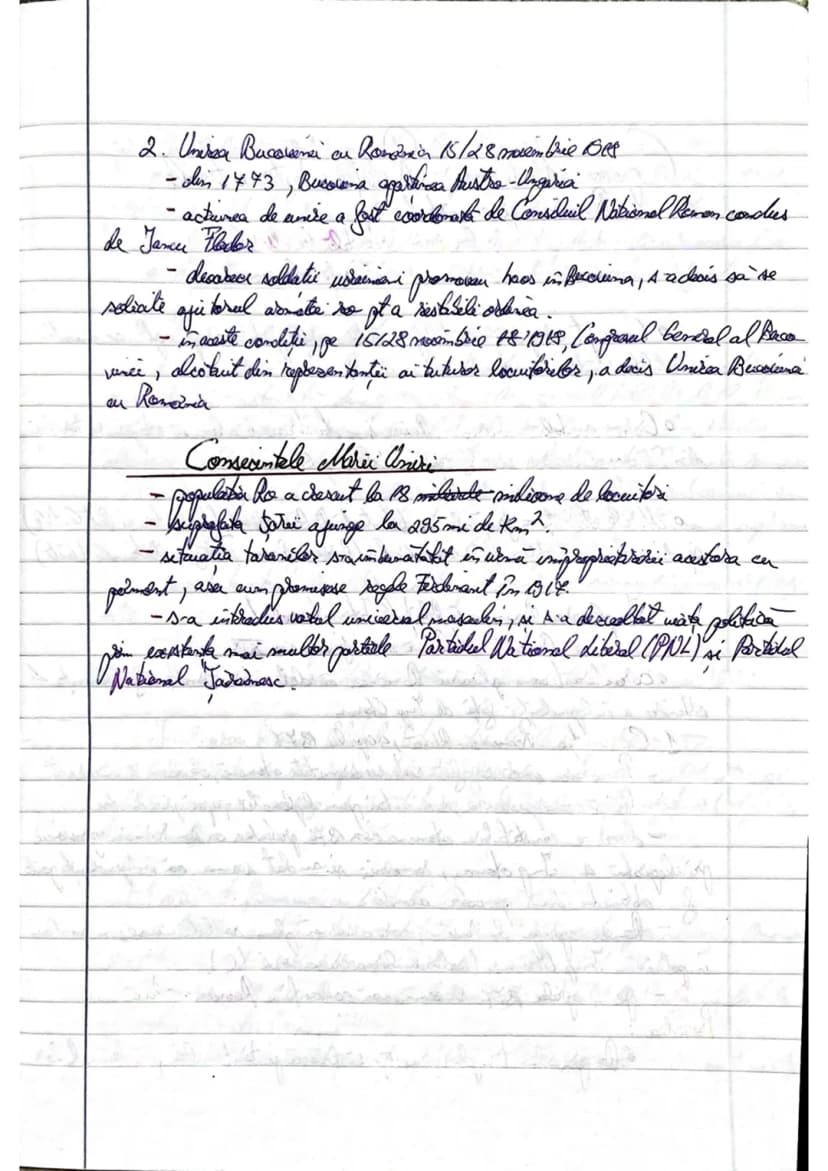 2. Unirea Bucovinei cu România 15/28 noiembrie 1918
- din 1773, Bucovina aparținea Austro-Ungariei
- acțiunea de unire a fost coordonată de Consiliul Național Roman condus
de Iancu Flodor
- deoarece soldatii ucraineni promovau haos in Bucovina, s-a decis să se
solicite ajutorul armatei ro pt a restabili ordinea.
- in aceste condiții, pe 15/28 noiembrie 1918, Congresul General al Buco
vinei, alcatuit din reprezentantii ai tuturor locuitorilor, a decis Unirea Bucovinei
cu România
Consecintele Marii Uniri
- populația Ro a crescut la 18 miliarde milioane de locuitori
- suprafata țarii ajunge la 295 mi de Km².
- situatia taranilor s-a imbunatatit in urma improprietaririi acestora cu
pămant, asa cum promisese regele Ferdinant în 1917.
- s-a introdus votul universal masculin, si s-a dezvoltat viața politică
prin existenta mai multor partide Partidul National Liberal (PNL) și Partidul
National Țaranesc.